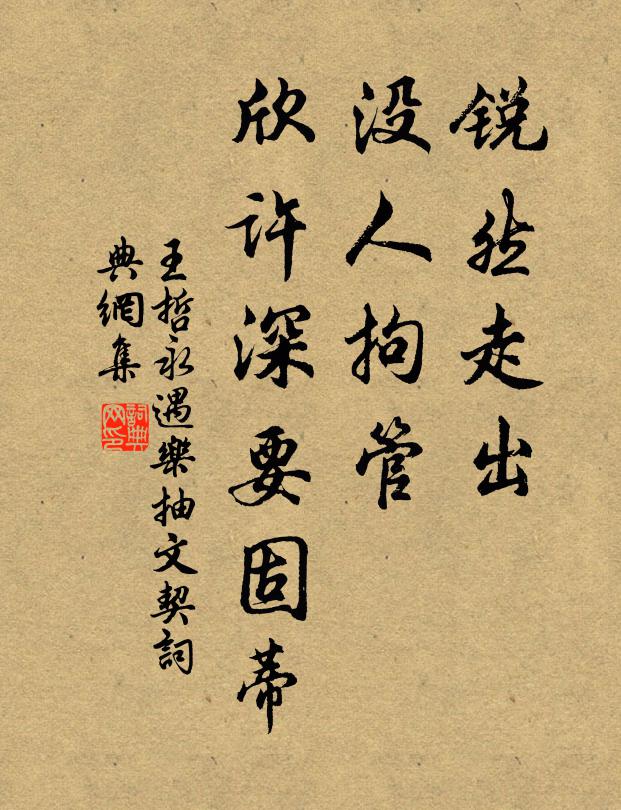 锐然走出
没人拘管
欣许深要固蒂
王哲永遇樂抽文契詞
典網集
詞典
网印